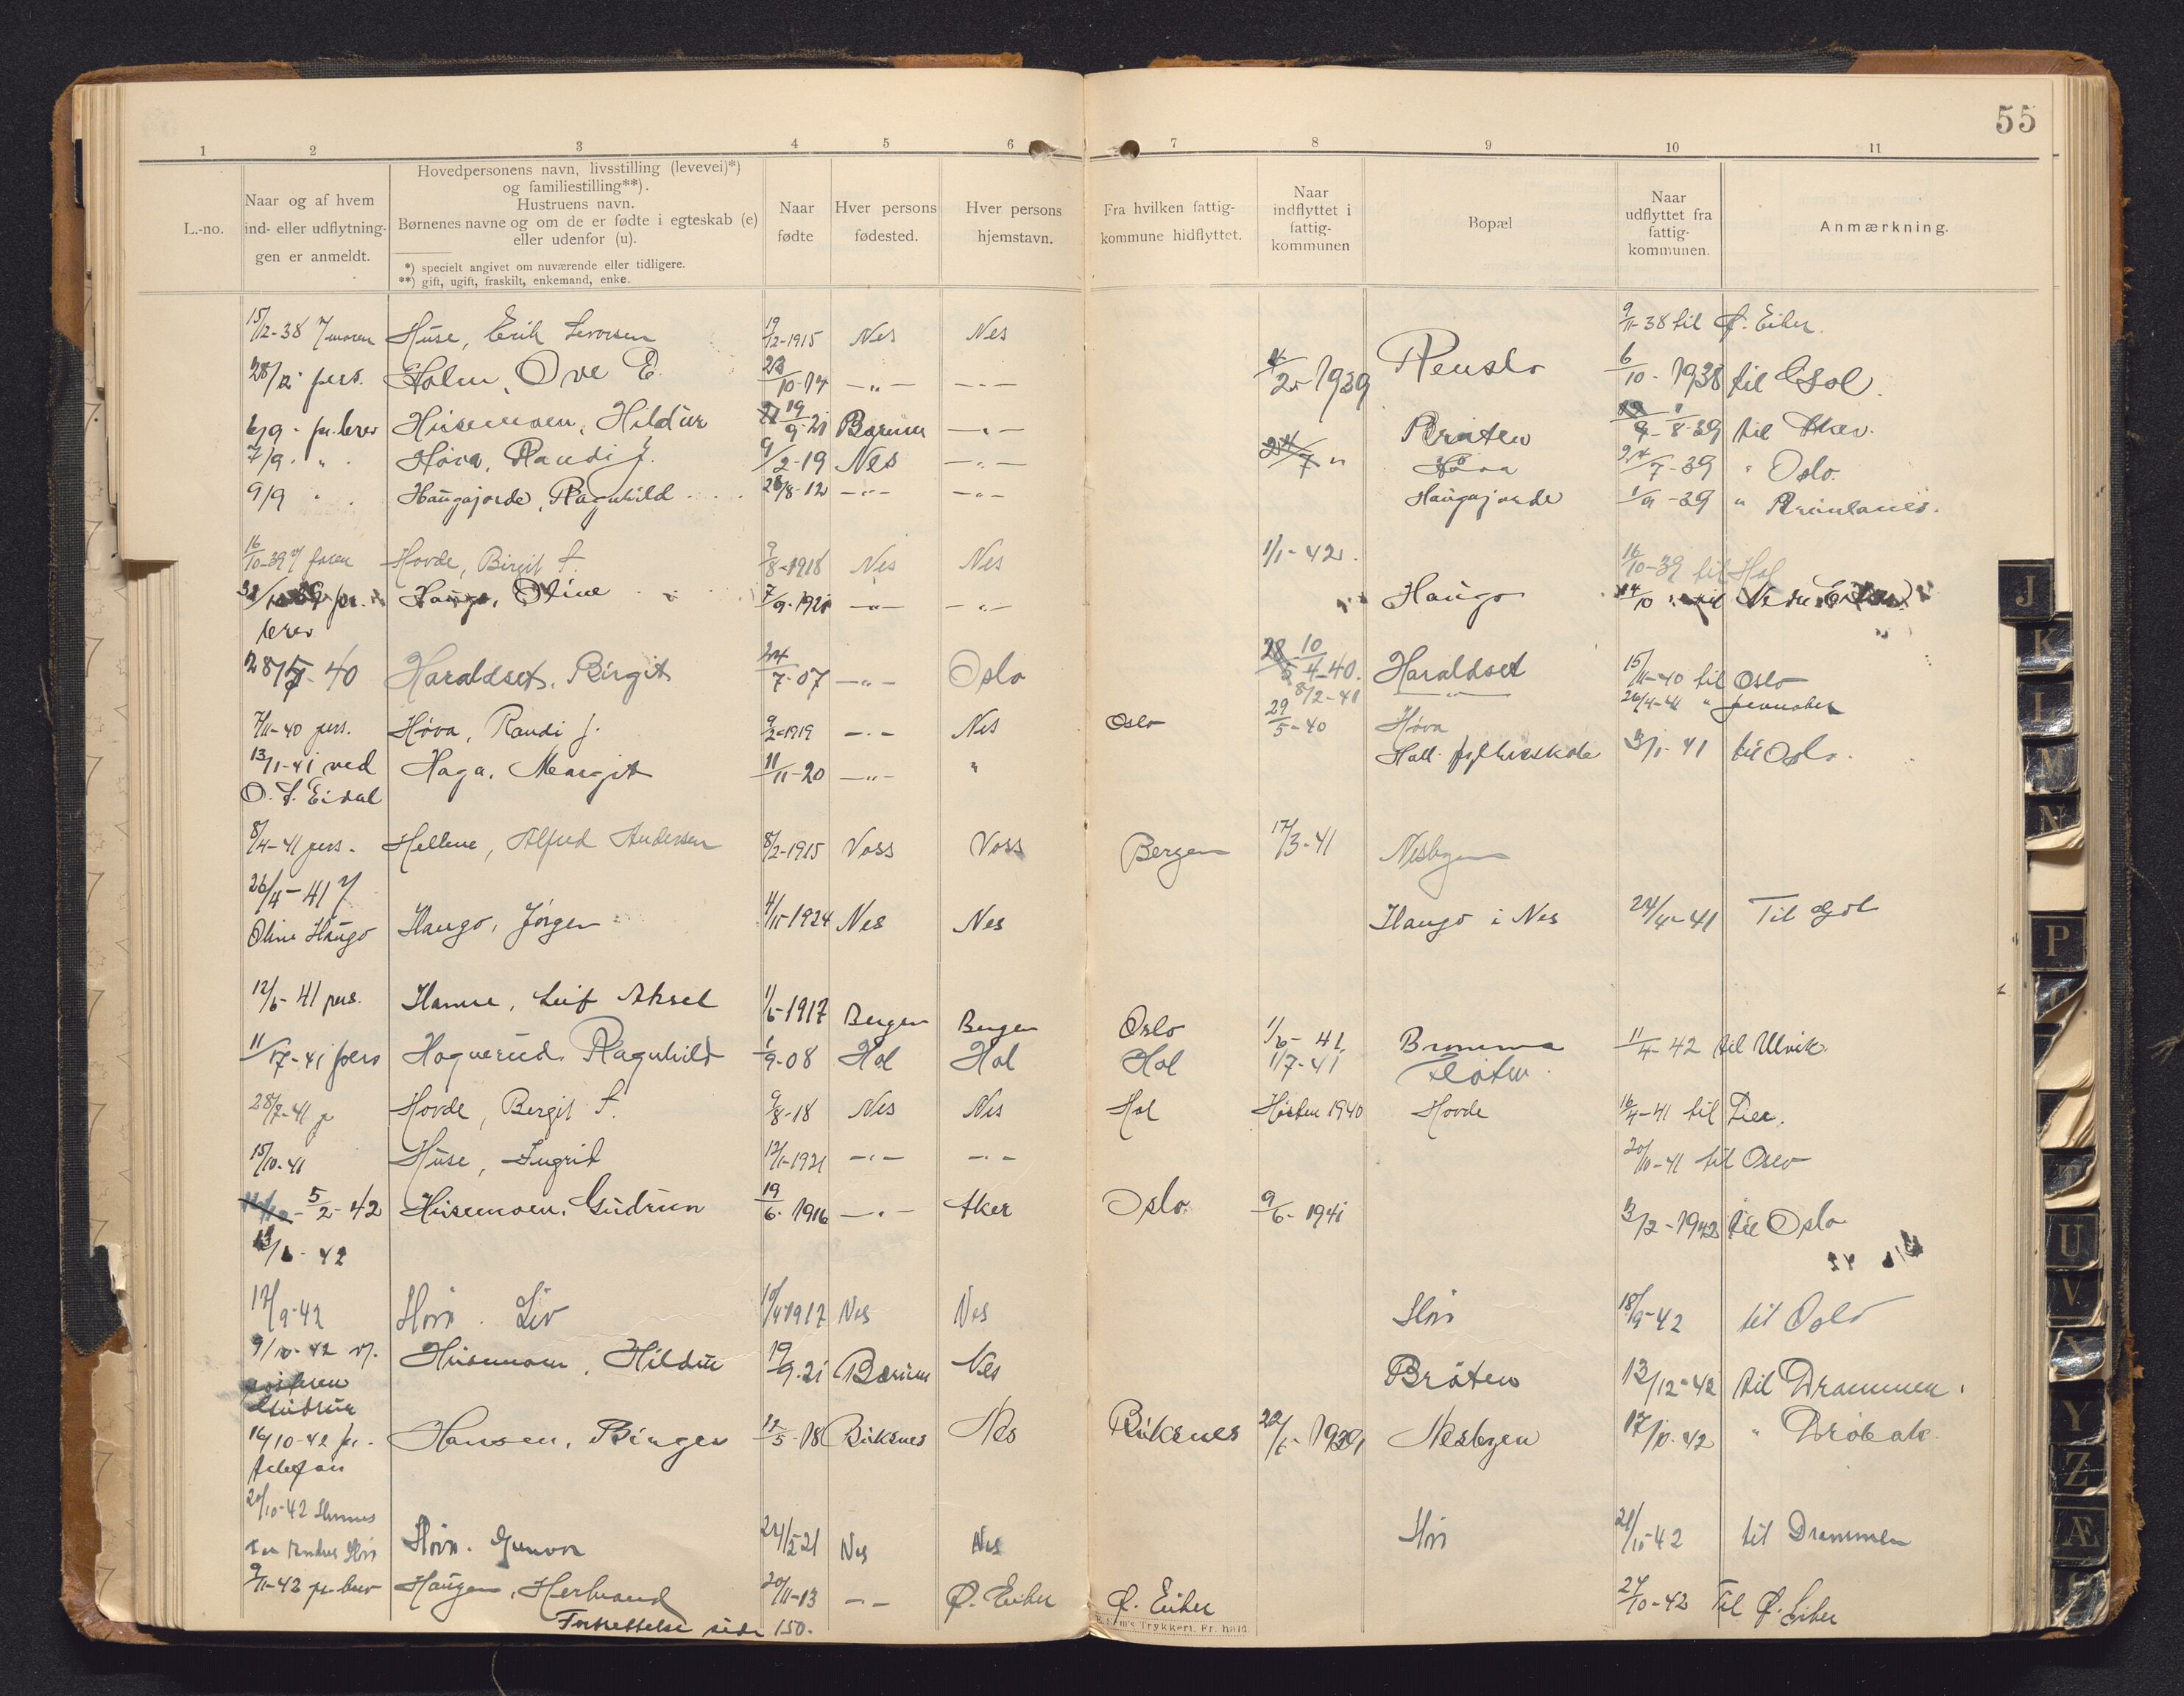 55
1 2 3 4 5 6 7 8 9 10 11
L.-no.
Naar og af hvem
ind- eller udflytning-
gen er anmeldt.
Hovedpersonens navn, livsstilling (levevei)*)
og familiestilling**).
Hustruens navn.
Børnenes navne og om de er fødte i egteskab (e)
eller udenfor (u).
*) specielt angivet om nuværende eller tidligere.
**) gift, ugift, fraskilt, enkemand, enke.
Naar
fødte
Hver persons
fødested.
Hver persons
hjemstavn.
Fra hvilken fattig-
kommune hidflyttet.
Naar
indflyttet i
fattig-
kommunen
Bopæl
Naar
udflyttet fra
fattig-
kommunen.
Anmærkning.
15/12-38 Huse, Erik 19/2-1915 Nes Nes 9/11-38 til Ø. Eiker.
28/12 pers. Holm, Ove E. 10-14 —„— —„— 1939 Renslo 6/10-1938 til Gol.
6/9 - pr. brev Husemoen, Hildur 19/9-21 Bærum —„— Bråten 8-39 til Aker.
7/9 - „ Høva, Randi J. 9/2-19 Nes —„— 24/7 „ Høva 24/7-39 „ Oslo.
9/9 „ Haugajorde, Ragnhild 28/8-12 —„— —„— Haugajorde 1/9-39 „ Brunlanes.
16/10-39 v/ faren Hovde, Birgit S. 9/8-1918 Nes Nes 1/1-42. 16/10-39 til Hol
pr. Haugo, Oline 7/9-1921 —„— —„— Haugo 14/10 til Nedre Eiker
brev
28/5-40 Haraldset, Birgit 24/7-07 —„— Oslo 10/4-40. Haraldset 15/11-40 til Oslo
8/2-41 —„— 26/4-41 „ Jevnaker
7/11-40 pers. Høva, Randi J. 9/2-1919 —„— Nes Oslo 29/5-40 Høva
13/1-41 ved Haga, Margit 11/11-20 —„— „ Hall. fylkesskole 3/1-41 til Oslo.
O. S. Eidal
8/4-41 pers. Hellene, Alfred Andersen 8/2-1915 Voss Voss Bergen 17/3-41 Nesbyen
26/4-41 v/
Oline Haugo Haugo, Jørgen 4/11-1924 Nes Nes Haugo i Nes 24/4-41 Til Gol
12/6-41 pers. Hamre, Leif Aksel 1/6-1917 Bergen Bergen Oslo 1/6-41 Bromma 11/4-42 til Ulvik.
11/7-41 pers Hognerud, Ragnhild 1/9-08 Hol Hol Hol 1/7-41 Flaten.
28/7-41 p Hovde, Bergit S. 9/8-18 Nes Nes Hol Høsten 1940 Hovde 16/4-41 til Lier.
15/10-41 Huse, Ingrid 12/1-1921 —„— —„— 20/10-41 til Oslo
5/2-42 Husemoen, Gudrun 19/6-1916 —„— Aker Oslo 9/6-1941 3/2-1942 til Oslo
42
17/9-42 Liv Nes Nes 18/9-42 til Oslo
9/10-42 v. Husemoen, Hildur 19/9-21 Bærum Nes Bråten 13/12-42 til Drammen.
søsteren
Gudrun
16/10-42 pr. Hansen, Birger 12/5-18 Buksnes Nes Buksnes 1939 Nesbyen 17/10-42 „ Drøbak.
telefon
20/10-42
Gunvor 21 Nes Nes 21/10-42 til Drammen
9/11-42 pr. brev Haugen, Herbrand 20/11-13 —„— Ø. Eiker Ø. Eiker 24/10-42 Til Ø. Eiker
Fortsettelse side 150.
Trykkeri, Fr.hald
J
K
L
M
N
P
U
V
X
Y
Z
Æ